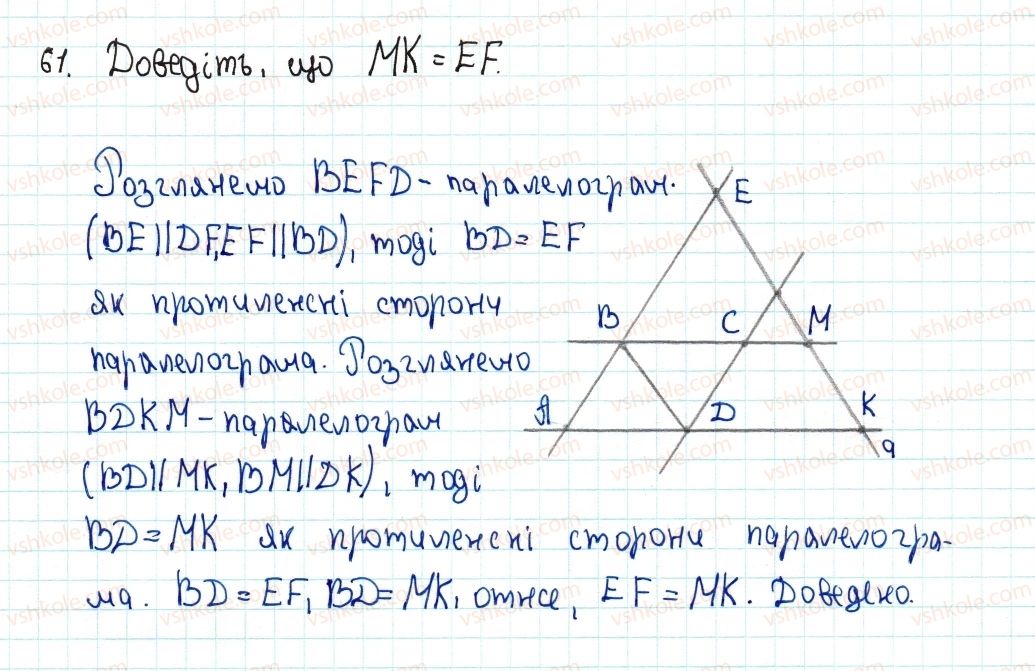 61. Доведіть, що MK = EF.
Розглянемо BEFD - паралелограм.
(BE||DF, EF||BD), тоді BD = EF
як протилежні сторони
паралелограма. Розглянемо
BDKM - паралелограм
(BD||MK, BM||DK), тоді
BD = MK як протилежні сторони паралелогра-
ма. BD = EF, BD = MK, отже, EF = MK. Доведено.
E
B
C
M
A
D
K
a
vshkole.com